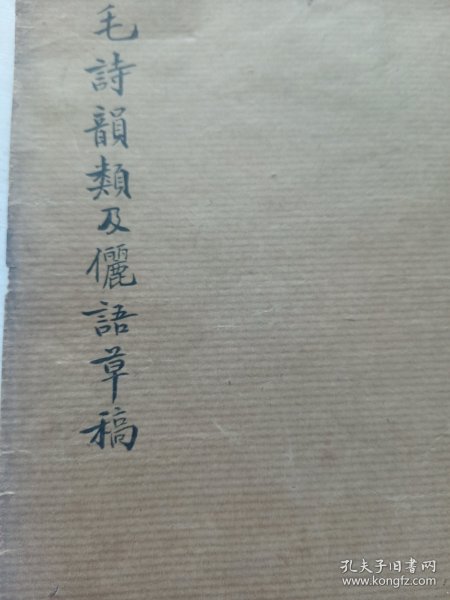 毛詩韻類及儷語草稿
孔夫子旧书网
www.kongfz.com